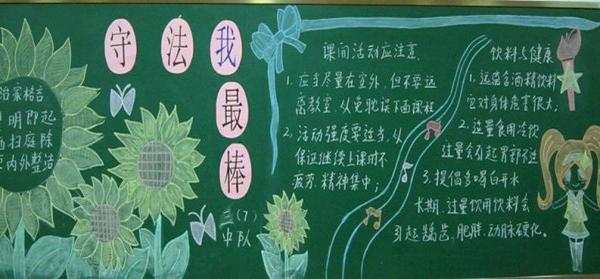 治家格言
明即起
洒扫庭除
内外整洁
守法我最棒
三(7)
中队
课间活动应注意
1. 应当尽量在室外，但不要远
离教室，以免耽误下面课程
2. 活动强度要适当，以
保证继续上课时不
疲劳，精神集中；
饮料与健康
1. 远离含酒精饮料
它对身体危害很大；
2. 过量食用冷饮
过量会引起胃部不适
3. 提倡多喝白开水
长期、过量饮用饮料会
引起龋齿、肥胖、动脉硬化。